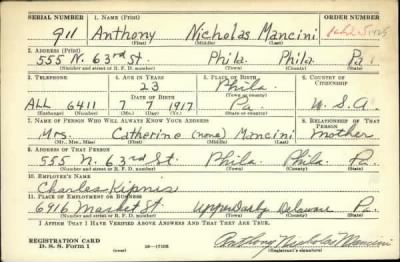 SERIAL NUMBER 1. NAME (Print) ORDER NUMBER
911 Anthony Nicholas Mancini
(First) (Middle) (Last)
2. ADDRESS (Print)
555 N. 63rd St. Phila. Phila. Pa.
(Number and street or R. F. D. number) (Town) (County) (State)
3. TELEPHONE 4. AGE IN YEARS 5. PLACE OF BIRTH 6. COUNTRY OF CITIZENSHIP
23 Phila.
DATE OF BIRTH (Town or county)
ALL 6411 7 7 1917 Pa U.S.A
(Exchange) (Number) (Mo.) (Day) (Yr.) (State or country)
7. NAME OF PERSON WHO WILL ALWAYS KNOW YOUR ADDRESS 8. RELATIONSHIP OF THAT PERSON
Mrs. Catherine (none) Mancini mother
(Mr., Mrs., Miss) (First) (Middle) (Last)
9. ADDRESS OF THAT PERSON
555 N. 63rd St. Phila. Phila. Pa.
(Number and street or R. F. D. number) (Town) (County) (State)
10. EMPLOYER'S NAME
Charles Kipnis
11. PLACE OF EMPLOYMENT OR BUSINESS
6916 Market St. Upper Darby Delaware Pa.
(Number and street or R. F. D. number) (Town) (County) (State)
I AFFIRM THAT I HAVE VERIFIED ABOVE ANSWERS AND THAT THEY ARE TRUE.
REGISTRATION CARD
D. S. S. Form 1 (over) 16—17105 Anthony Nicholas Mancini
(Registrant's signature)